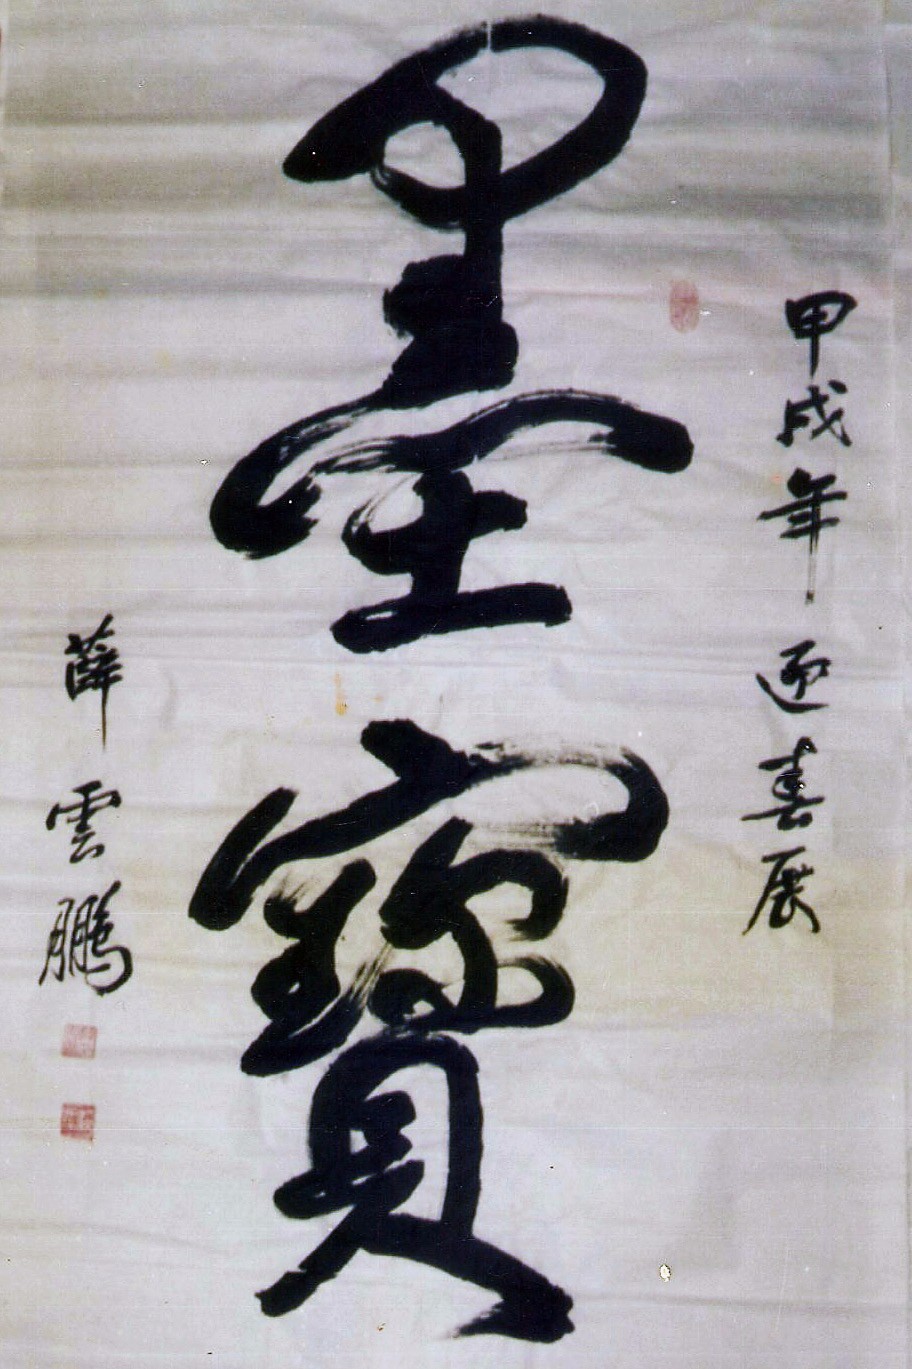 甲戌年 迎春展
墨寶
薛雲鵬